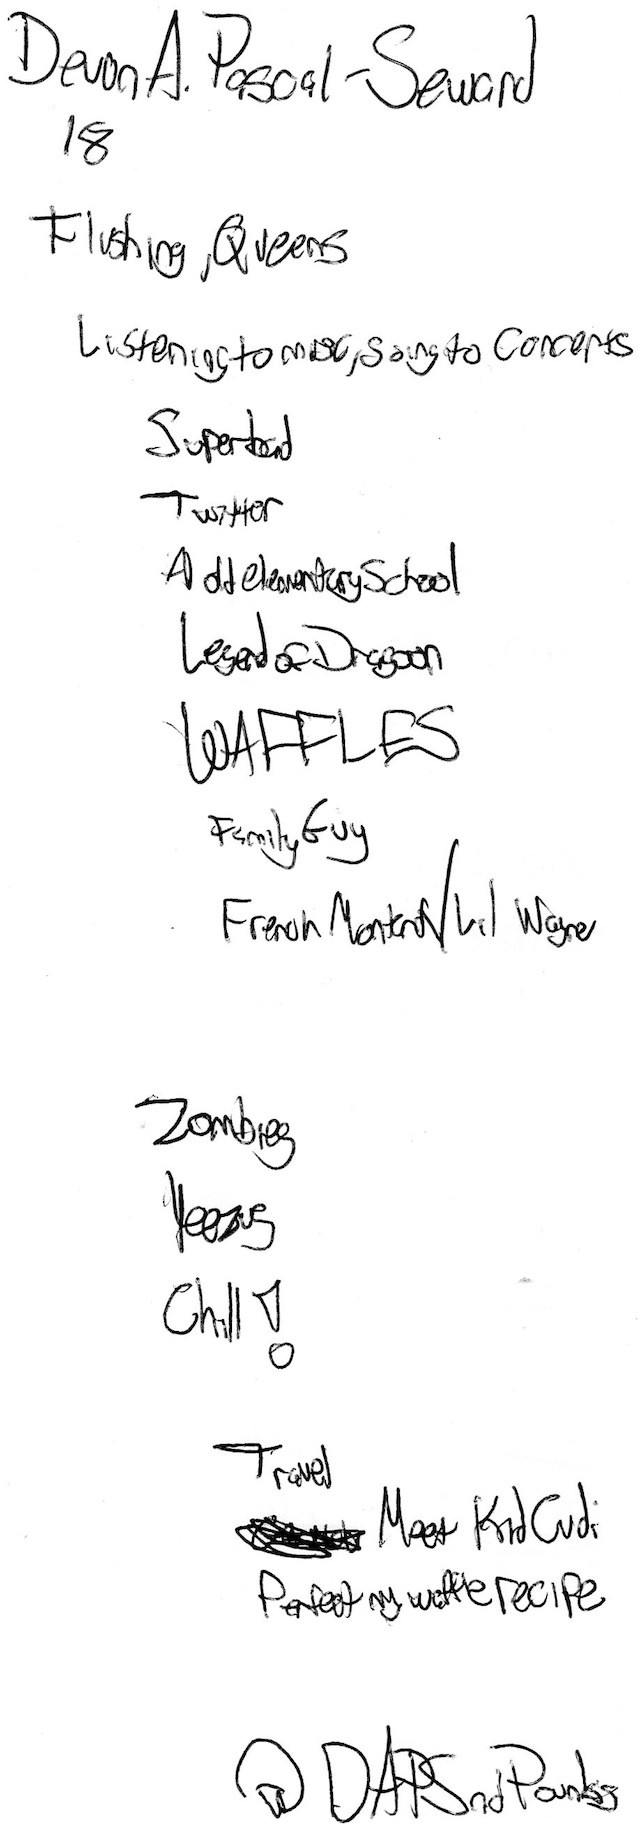 Devon A. Pascal-Seward
18
Flushing, Queens
Listening to music, Going to Concerts
Superbad
Twitter
A old elementary School
Legend of Dragoon
WAFFLES
Family Guy
French Montana/Lil Wayne
Zombies
Yeezus
Chill!
Travel
Meet Kid Cudi
Perfect my waffle recipe
@DAPSndPounds